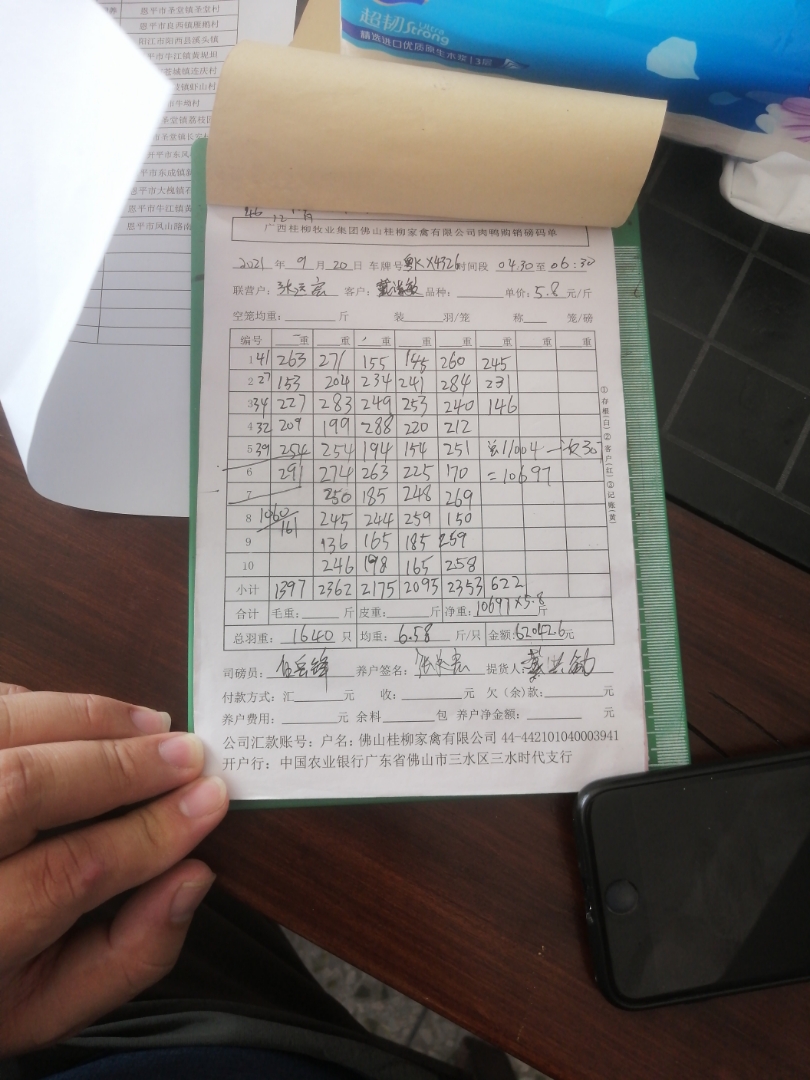 恩平市圣堂镇圣堂村
恩平市良西镇雁鹅村
阳江市阳西县溪头镇
平市牛江镇黄泥坦
君城镇连庆村
镇虾山村
平市东成镇
恩平市大槐镇石
恩平市牛江镇黄
恩平市风山路南
超韧 Ultra Strong
精选进口优质原生木浆 | 3层
广西桂柳牧业集团佛山桂柳家禽有限公司肉鸭购销磅码单
2021 年 9 月 20 日 车牌号 粤KX4326 时间段 04:30 至 06:30
联营户: 客户: 品种: 单价: 5.8 元/斤
空笼均重: 斤 装 羽/笼 称 笼/磅
编号 重 重 重 重 重 重 重 重
1 41 263 271 155 145 260 245
2 27 153 204 234 241 284 231
3 34 227 283 249 253 240 146
4 32 209 199 288 220 212
5 39 254 254 194 154 251 总11004
6 291 274 263 225 170 =10697
7 250 185 248 269
8 1060/161 245 244 259 150
9 136 165 185 259
10 246 198 165 258
小计 1397 2362 2175 2095 2353 622
合计 毛重: 斤 皮重: 斤 净重: 10697×5.8 斤
总羽重: 1640 只 均重: 6.58 斤/只 金额: 62042.6元
司磅员: 养户签名: 提货人:
付款方式: 汇 元 收: 元 欠(余)款: 元
养户费用: 元 余料 包 养户净金额: 元
公司汇款账号: 户名: 佛山桂柳家禽有限公司 44-442101040003941
开户行: 中国农业银行广东省佛山市三水区三水时代支行
①存根(白)②客户(红)③记账(黄)